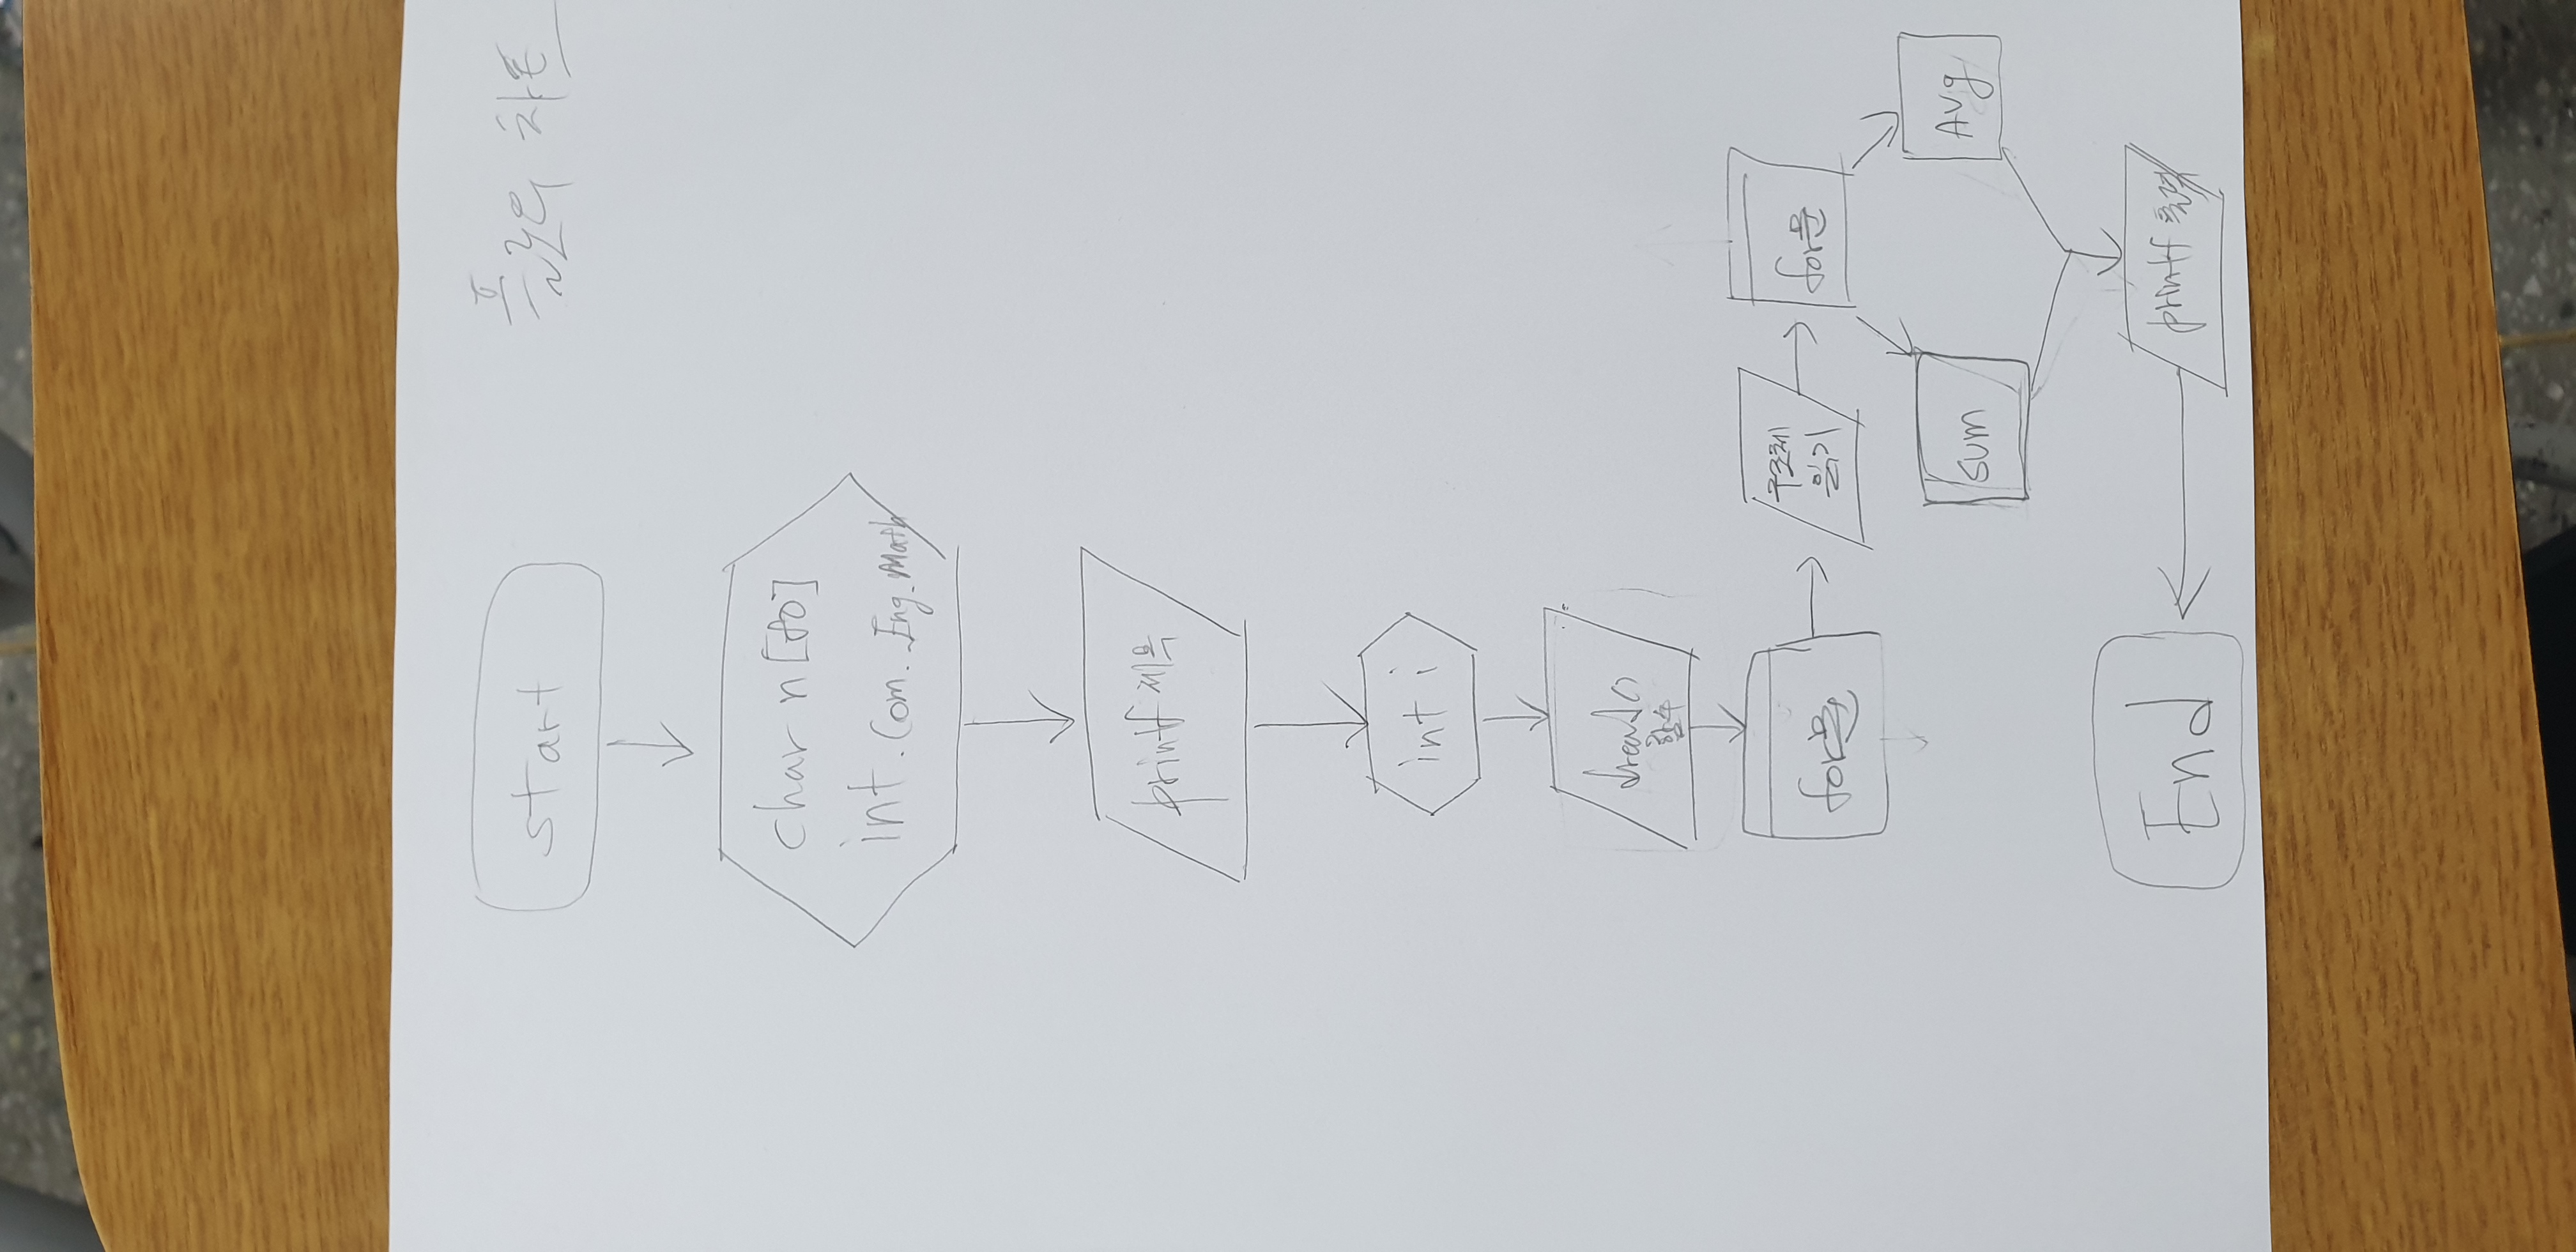 플로우 차트
start
char n[80]
int. Com. Eng. Math
printf 제목
int i
fread()
함수
for문
구조체
읽기
for문
sum
Avg
printf 출력
End